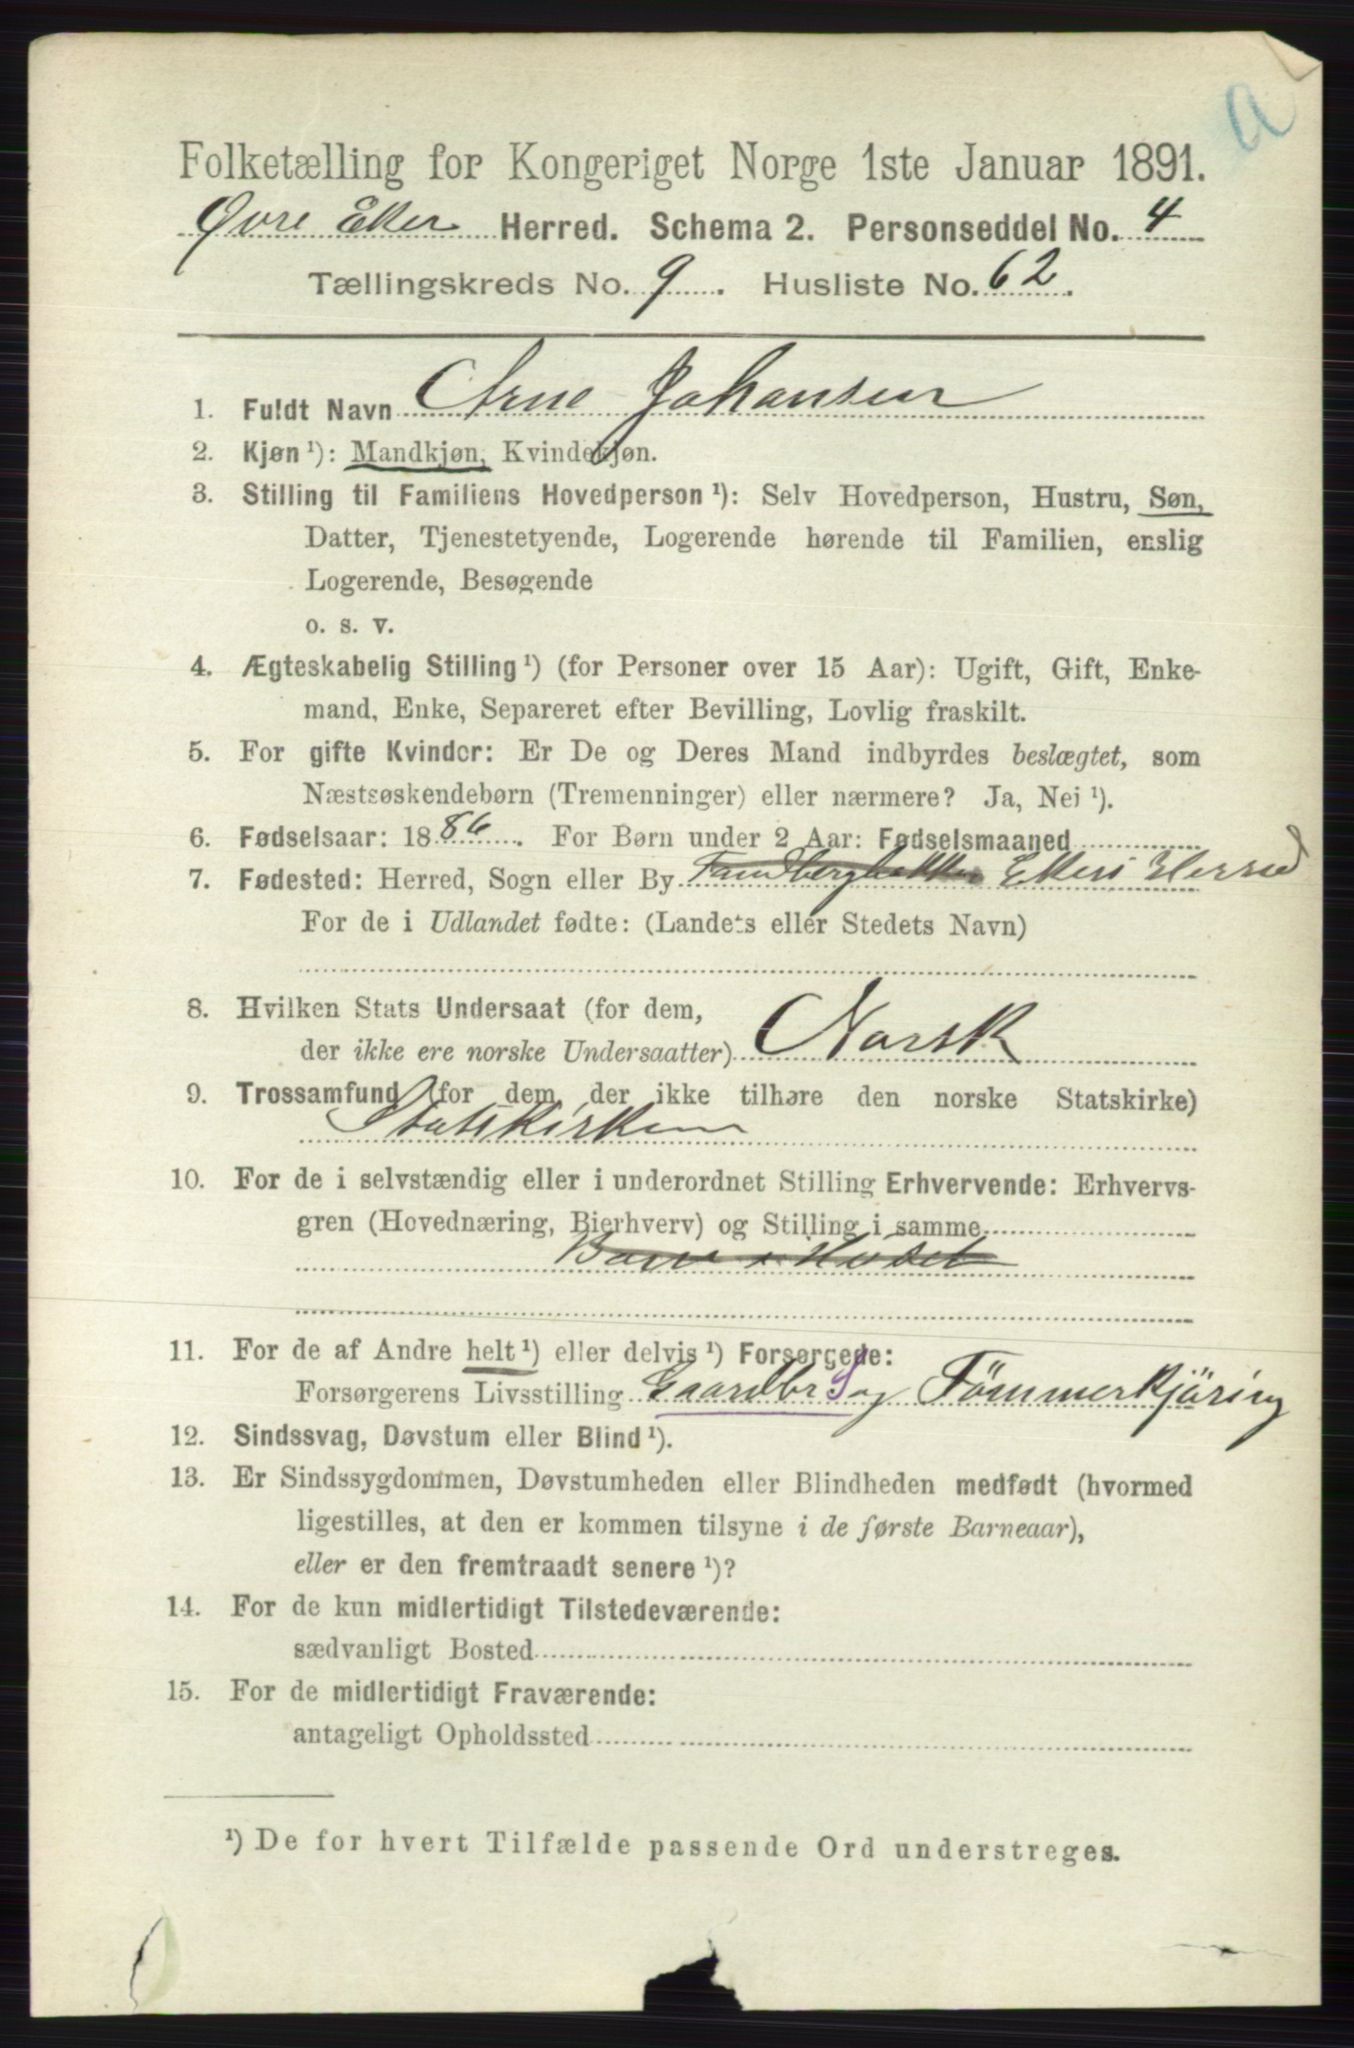 a
Folketælling for Kongeriget Norge 1ste Januar 1891.
Øvre Eker Herred. Schema 2. Personseddel No. 4
Tællingskreds No. 9. Husliste No. 62.
1. Fuldt Navn Arne Johansen
2. Kjøn ¹): Mandkjøn, Kvindekjøn.
3. Stilling til Familiens Hovedperson ¹): Selv Hovedperson, Hustru, Søn,
Datter, Tjenestetyende, Logerende hørende til Familien, enslig
Logerende, Besøgende
o. s. v.
4. Ægteskabelig Stilling ¹) (for Personer over 15 Aar): Ugift, Gift, Enke-
mand, Enke, Separeret efter Bevilling, Lovlig fraskilt.
5. For gifte Kvinder: Er De og Deres Mand indbyrdes beslægtet, som
Næstsøskendebørn (Tremenninger) eller nærmere? Ja, Nei ¹).
6. Fødselsaar: 1886. For Børn under 2 Aar: Fødselsmaaned
7. Fødested: Herred, Sogn eller By Ekers Herred
For de i Udlandet fødte: (Landets eller Stedets Navn)
8. Hvilken Stats Undersaat (for dem,
der ikke ere norske Undersaatter) Norsk
9. Trossamfund (for dem, der ikke tilhøre den norske Statskirke)
Statskirken
10. For de i selvstændig eller i underordnet Stilling Erhvervende: Erhvervs-
gren (Hovednæring, Bierhverv) og Stilling i samme
Barn i Huset
11. For de af Andre helt ¹) eller delvis ¹) Forsørgede:
Forsørgerens Livsstilling Gaardbr S og Tömmerkjöring
12. Sindssvag, Døvstum eller Blind ¹).
13. Er Sindssygdommen, Døvstumheden eller Blindheden medfødt (hvormed
ligestilles, at den er kommen tilsyne i de første Barneaar),
eller er den fremtraadt senere ¹)?
14. For de kun midlertidigt Tilstedeværende:
sædvanligt Bosted
15. For de midlertidigt Fraværende:
antageligt Opholdssted
¹) De for hvert Tilfælde passende Ord understreges.